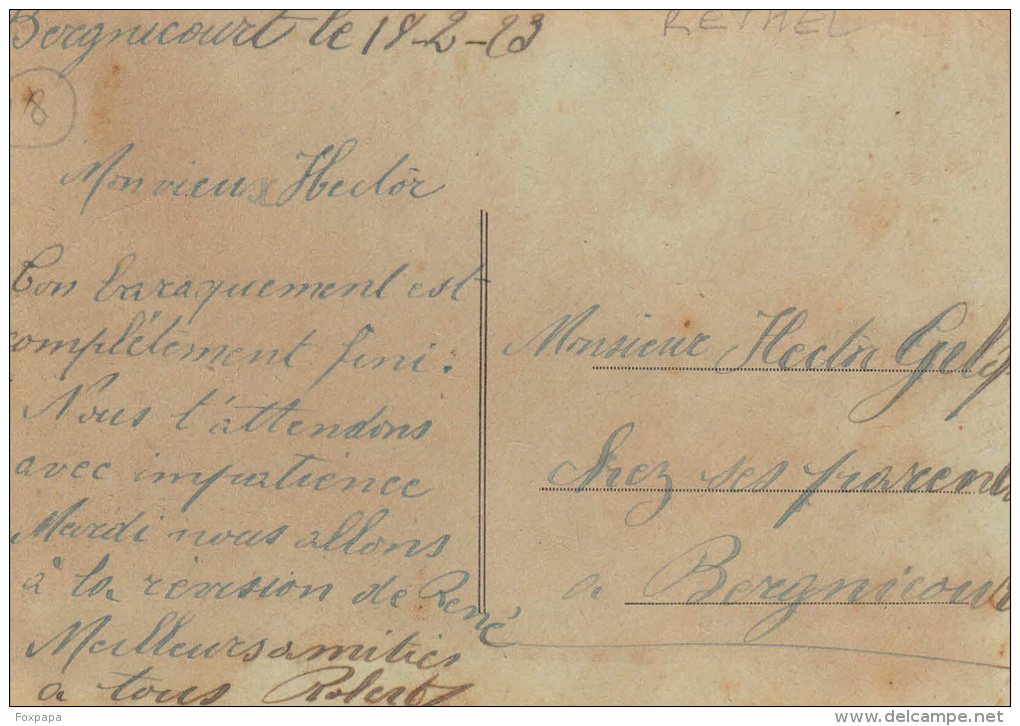 Bergnicourt le 18-2-23
RETHEL
8
Mon vieux Hector
Ton baraquement est
complètement fini.
Nous t'attendons
avec impatience
Mardi nous allons
à la révision de René
Meilleurs amitiés
a tous Robert
Monsieur Hector
chez ses parents
a Bergnicourt
Foxpapa
www.delcampe.net